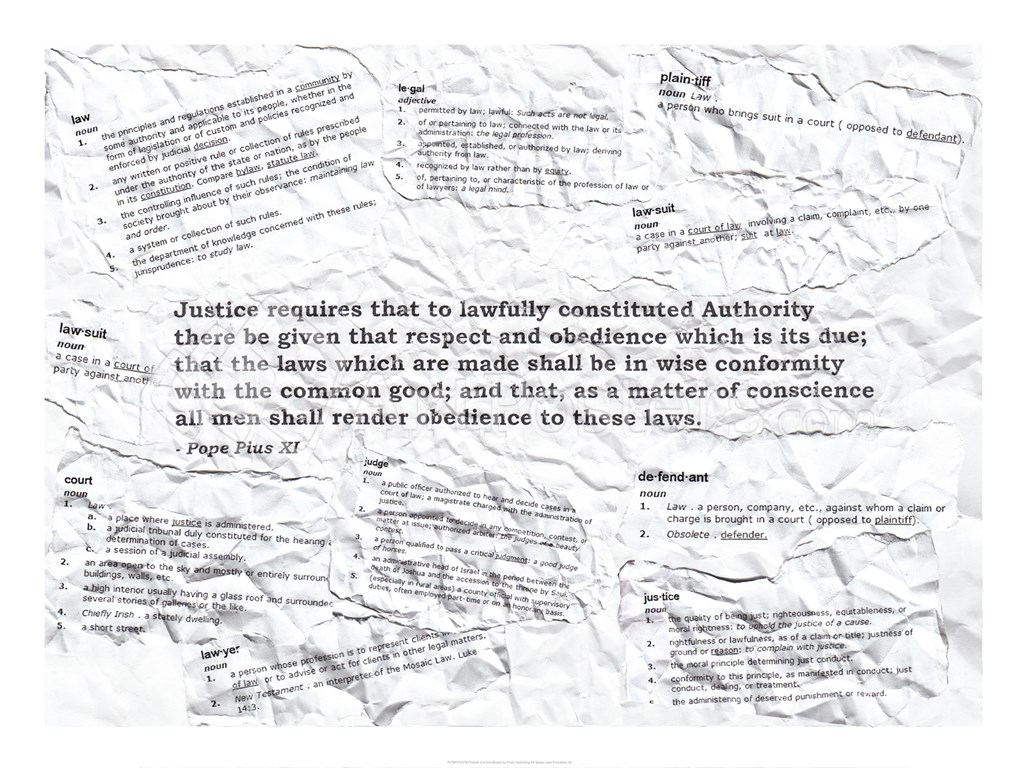 law
noun
1. the principles and regulations established in a community by
some authority and applicable to its people, whether in the
form of legislation or of custom and policies recognized and
enforced by judicial decision.
2. any written or positive rule or collection of rules prescribed
under the authority of the state or nation, as by the people
in its constitution. Compare bylaw, statute law.
3. the controlling influence of such rules; the condition of
society brought about by their observance: maintaining law
and order.
4. a system or collection of such rules.
5. the department of knowledge concerned with these rules;
jurisprudence: to study law.
le·gal
adjective
1. permitted by law; lawful: Such acts are not legal.
2. of or pertaining to law; connected with the law or its
administration: the legal profession.
3. appointed, established, or authorized by law; deriving
authority from law.
4. recognized by law rather than by equity.
5. of, pertaining to, or characteristic of the profession of law or
of lawyers: a legal mind.
plain·tiff
noun Law .
a person who brings suit in a court ( opposed to defendant).
law·suit
noun
a case in a court of law involving a claim, complaint, etc., by one
party against another; suit at law.
law·suit
noun
a case in a court of
party against anoth
Justice requires that to lawfully constituted Authority
there be given that respect and obedience which is its due;
that the laws which are made shall be in wise conformity
with the common good; and that, as a matter of conscience
all men shall render obedience to these laws.
- Pope Pius XI
court
noun
1. Law .
a. a place where justice is administered.
b. a judicial tribunal duly constituted for the hearing
determination of cases.
c. a session of a judicial assembly.
2. an area open to the sky and mostly or entirely surroun
buildings, walls, etc.
3. a high interior usually having a glass roof and surrounded
several stories of galleries or the like.
4. Chiefly Irish . a stately dwelling.
5. a short street.
judge
noun
1. a public officer authorized to hear and decide cases in a
court of law; a magistrate charged with the administration of
justice.
2. a person appointed to decide in any competition, contest, or
matter at issue; authorized arbiter: the judges of a beauty
contest.
3. a person qualified to pass a critical judgment: a good judge
of horses.
4. an administrative head of Israel in the period between the
death of Joshua and the accession to the throne by Saul.
5. (especially in rural areas) a county official with supervisory
duties, often employed part-time or on an honorary basis.
de·fend·ant
noun
1. Law . a person, company, etc., against whom a claim or
charge is brought in a court ( opposed to plaintiff).
2. Obsolete . defender.
jus·tice
noun
1. the quality of being just; righteousness, equitableness, or
moral rightness: to uphold the justice of a cause.
2. rightfulness or lawfulness, as of a claim or title; justness of
ground or reason: to complain with justice.
3. the moral principle determining just conduct.
4. conformity to this principle, as manifested in conduct; just
conduct, dealing, or treatment.
the administering of deserved punishment or reward.
law·yer
noun
1. a person whose profession is to represent clients in
of law or to advise or act for clients in other legal matters.
2. New Testament . an interpreter of the Mosaic Law. Luke
14:3.